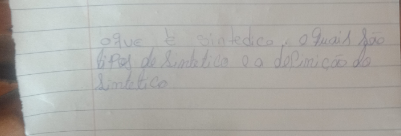 oque é sintedico, e quais são
tipos de sintetico e a definição de
sintetico